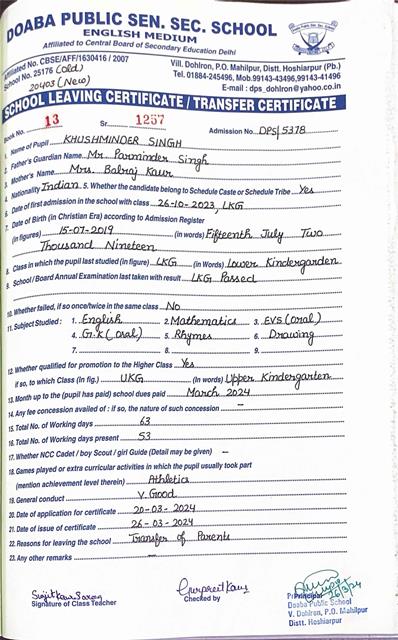 DOABA PUBLIC SEN. SEC. SCHOOL
ENGLISH MEDIUM
Affiliated to Central Board of Secondary Education Delhi
Affiliated No. CBSE/AFF/1630416 / 2007
School No. 25176 (old)
20403 (New)
Vill. Dohlron, P.O. Mahilpur, Distt. Hoshiarpur (Pb.)
Tel. 01884-245496, Mob.99143-43496,99143-41496
E-mail : dps_dohlron@yahoo.co.in
SCHOOL LEAVING CERTIFICATE / TRANSFER CERTIFICATE
Book No. 13 Sr. 1257 Admission No. DPS/5378
1. Name of Pupil KHUSHMINDER SINGH
2. Father's Guardian Name Mr. Parminder Singh
3. Mother's Name Mrs. Balraj Kaur
4. Nationality Indian 5. Whether the candidate belong to Schedule Caste or Schedule Tribe Yes
6. Date of first admission in the school with class 26-10-2023, LKG
7. Date of Birth (in Christian Era) according to Admission Register
(in figures) 15-07-2019 (in words) Fifteenth July Two
Thousand Nineteen
8. Class in which the pupil last studied (in figure) LKG (in Words) Lower Kindergarden
9. School / Board Annual Examination last taken with result LKG Passed
10. Whether failed, if so once/twice in the same class No
11. Subject Studied : 1. English 2. Mathematics 3. EVS (Oral)
4. G.K (Oral) 5. Rhymes 6. Drawing
7. 8. 9.
12. Whether qualified for promotion to the Higher Class Yes
if so, to which Class (In fig.) UKG (In words) Upper Kindergarten
13. Month up to the (pupil has paid) school dues paid March 2024
14. Any fee concession availed of : if so, the nature of such concession –
15. Total No. of Working days 63
16. Total No. of Working days present 53
17. Whether NCC Cadet / boy Scout / girl Guide (Detail may be given) –
18. Games played or extra curricular activities in which the pupil usually took part
(mention achievement level therein) Athletics
19. General conduct V. Good
20. Date of application for certificate 20-03-2024
21. Date of issue of certificate 26-03-2024
22. Reasons for leaving the school Transfer of Parents
23. Any other remarks –
Signature of Class Teacher
Gurpreet Kaur
Checked by
26/3/24
Principal
Doaba Public School
V. Dohlron, P.O. Mahilpur
Distt. Hoshiarpur